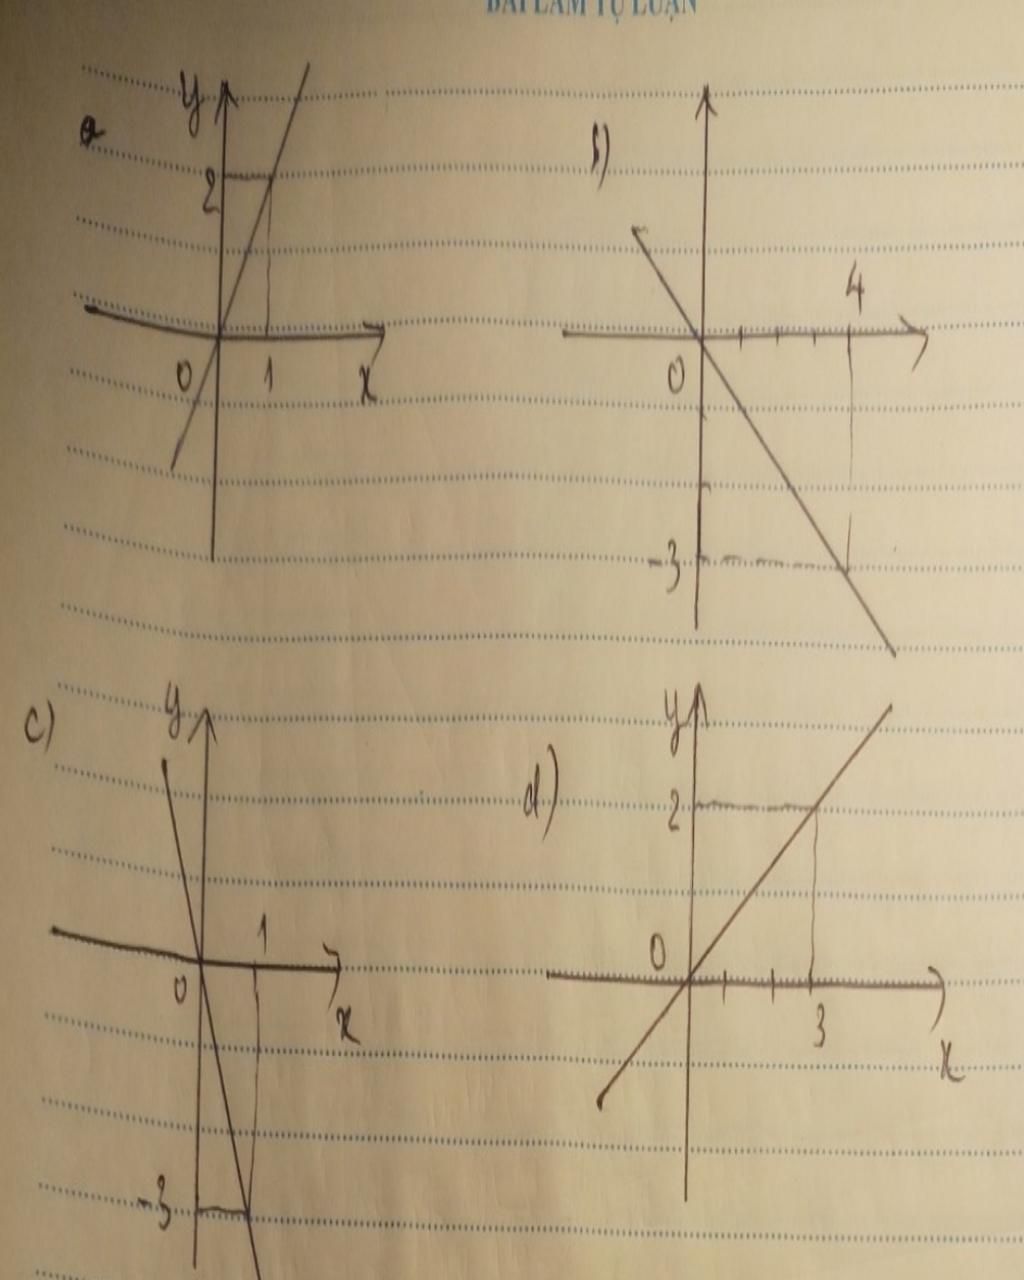 BÀI LÀM TỰ LUẬN
a
y
2
0
1
x
b)
4
0
-3
c)
y
1
0
x
-3
d)
y
2
0
3
x